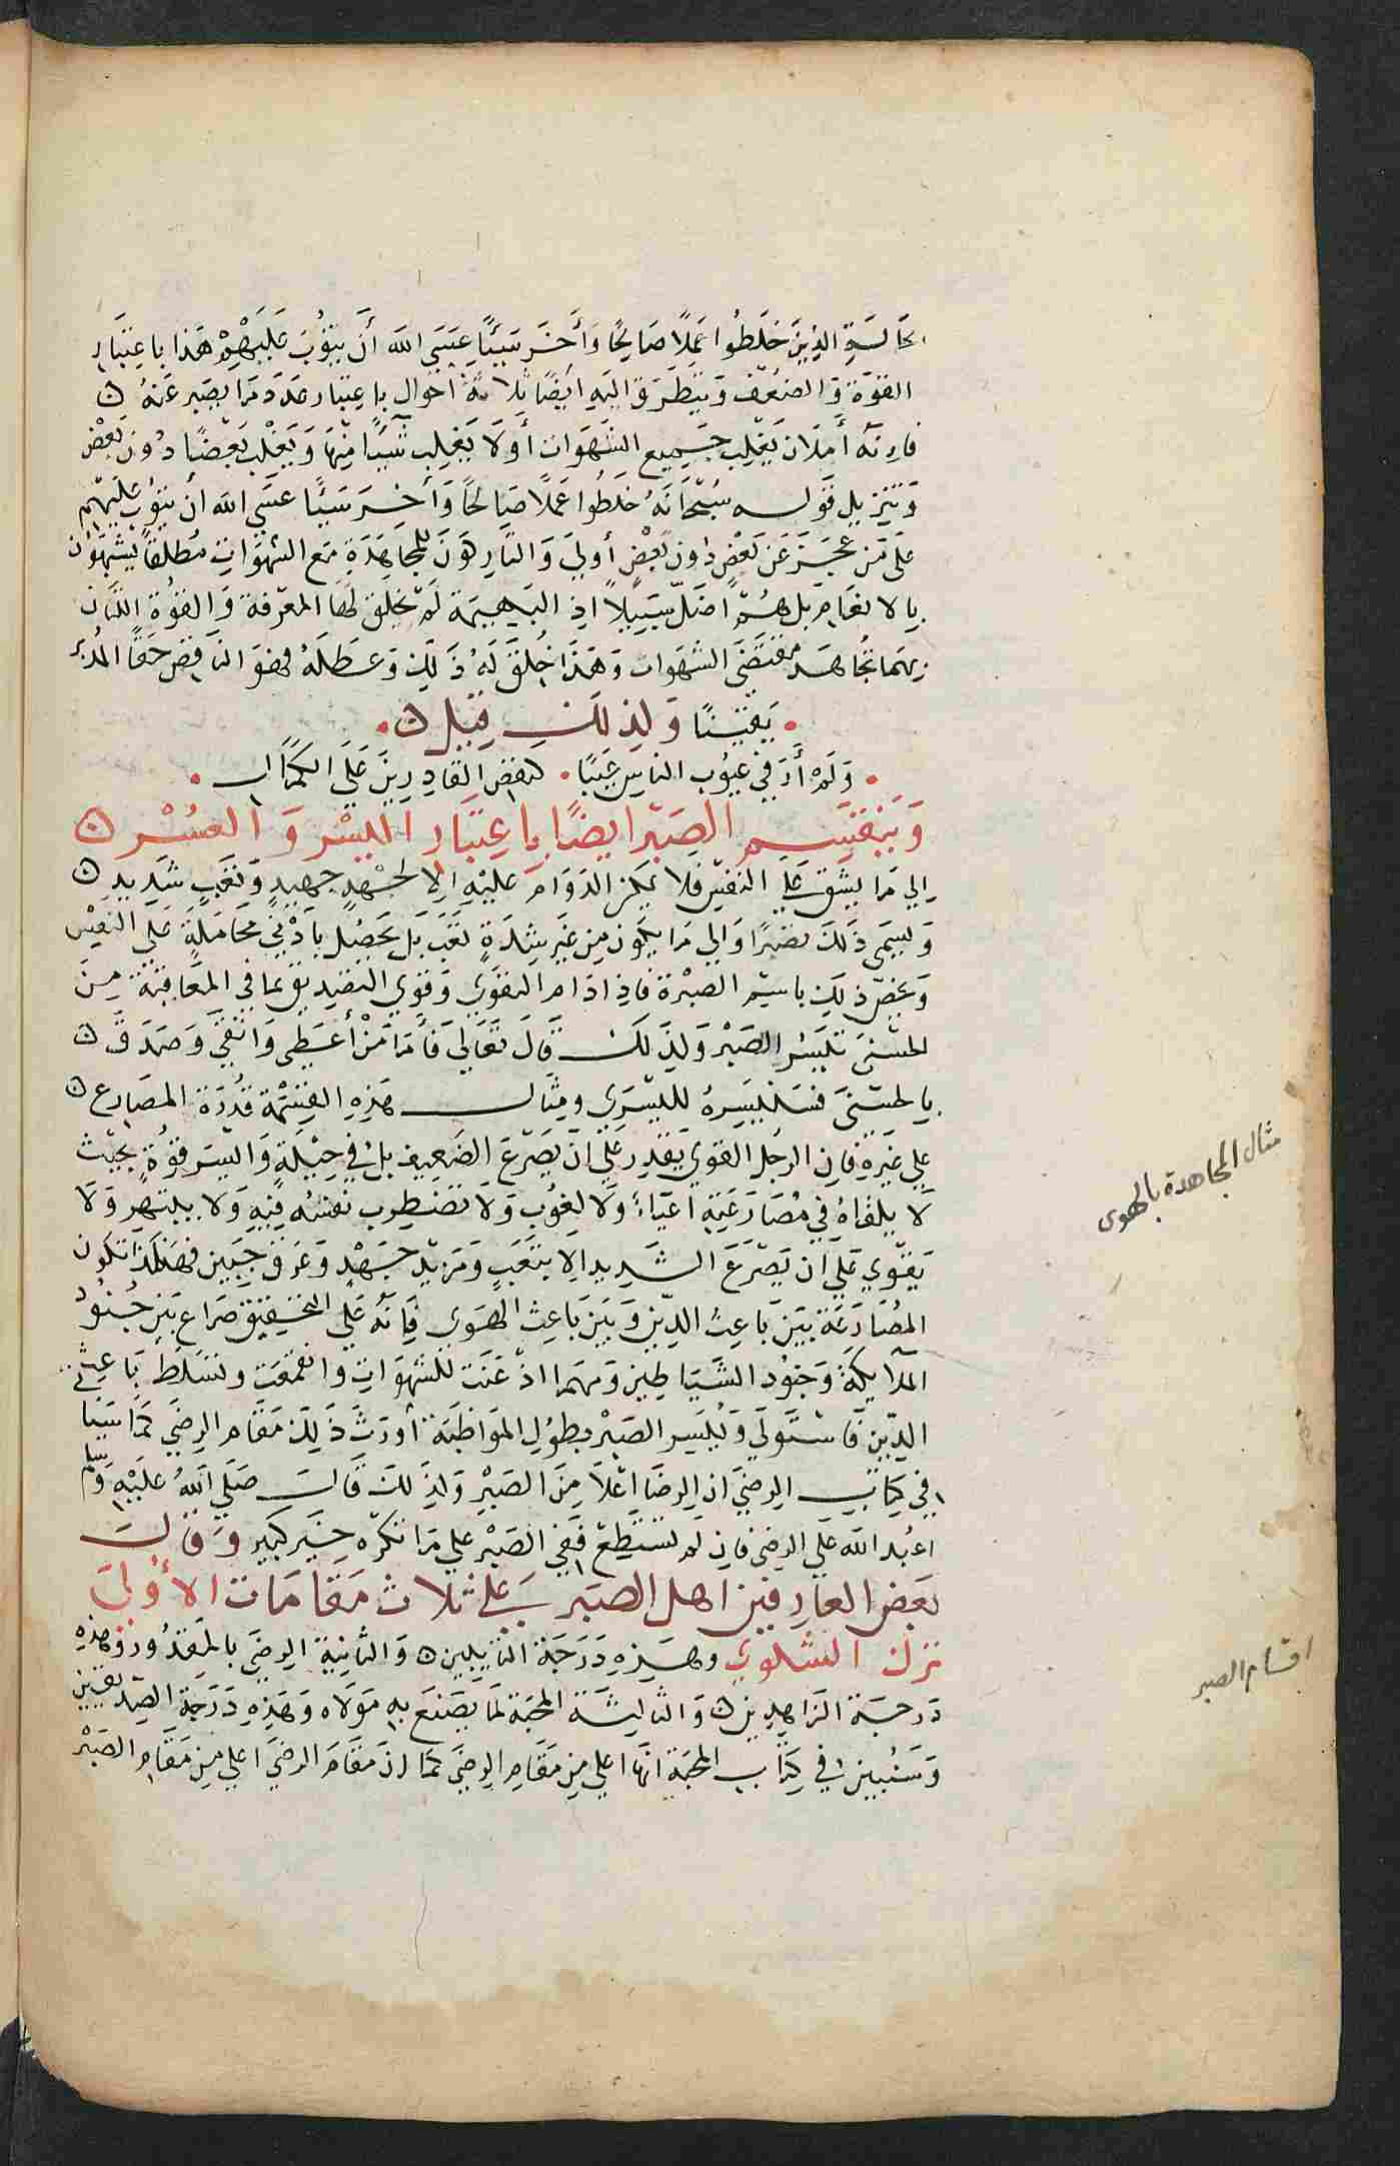 بحالة الذين خلطوا عملًا صالحًا وَأخر سَيئًا عسَى الله أن يتوُبَ عَليهْم هَذا باعتبَار
القوة وَالضعُف وَيتطرق اليه ايضًا ثلاثة احوال باعتبار عدَد مَا يصَبر عَنهُ ن
فانه أمّا ان يَغلِب جَميع الشهَوات أوَلا يَغلب شيئًا منهَا وَيَغلب بَعْضًا دُون بَعْض
وَتنزيل قوله سُبْحَانَهُ خلَطُوا عَملًا صَالحًا وَأخر سَيئًا عسَى الله ان يتوُب عليهم
عَلى مَن عجَز عَن بَعْض دُون بَعْضٍ أولىَ وَالتاركونَ للمجَاهَدَةِ مَع الشهوَاتِ مُطلقًا يشبهَون
بالانعَام بل هُمْ اضَلّ سَبيلًا اذ البَهيمَة لَمْ تخلق لهَا المعَرفة وَالقوُة اللتَان
بهمَا تجاهَد مقتضَى الشهَوات وَهَذا خُلقَ لَهُ ذَلِك وَعَطلَهُ فهوَ الناقِض حَقًا المُدْبر
يَقينًا وَلذلكَ قيْل ن
وَلَمْ أَرَ فِي عيُوب الناسِ عَيبًا • كنقصِ القادرينَ عَلَى الكمَال
وَيَنقسِم الصَبْر ايضًا باعتبَار اليسْر وَالعسُسْر ن
الي مَا يشق علي النفسَ فلا يمكن الدوَام عليْهِ الا لجهْدٍ جهيدٍ وَتعَبٍ شديدٍ ن
وَيسمَى ذَلكَ تصَبرًا وَالي مَا يكون مِن غَير شِدَةٍ تعَب بَل يحَصُل بأدْني محَامَلةٍ عَلي النفِس
وَيخصّ ذلِك باسْم الصبْرة فاذِا دَامَ التقوَي وَقوي التصَديق بمَا في المعَاقبَة مِنَ
الحسْنيَ تيَسَر الصَبْر وَلذَلكَ قَالَ تعَالي فَأمَا مَنْ أعْطى وَاتقيَ وَصَدق ن
بالحسْنىَ فسَنيَسِرهُ لليسْرَي ومِثَال هَذِهِ القسْمَة قُدرَة المصَارع ن
عَلي غَيره فان الرجُل القوي يَقدر عَلي ان يَصْرَعَ الضَعِيف بادني حيْلة وَاليسَر قوُةٍ بحيْث
لا يَلقاهُ في مُصَارَعَتِه اعيَاءٌ وَلا لغوُب وَلا تضطِرب نفسُه فيْهِ وَلا ينبَهِر وَلا
يَقوي عَلي ان يَصْرَعَ الشَديد الا بتعَبٍ وَمَزيْد جَهْدٍ وَعَرق جَبين فهَكَذا تكون
المصُارعَة بيَن بَاعِث الدّيْن وَبيَن بَاعِث الهوَي فانهُ عَلي التحقيق صَراع بيَن جُنوُد
الملائكة وَجنوُد الشيَاطين وَمهمَا اذعَنت للشهَوَات وانقمعَت وتسَلط بَاعِث
الديْن فَاستوَلي وَتيسَّر الصَبْر بطوُل الموَاظبَة أورَث ذَلِكَ مَقام الرضيَ كما سَيَأ
في كتَاب الرضيَ ان الرضَا اعْلا مِن الصَبْر وَلذَلك قَالَ صَلي اللهُ عليْهِ وَسلم
اعبُد الله عَلي الرضيَ فان لم تستَطِعْ ففِي الصَبْر علي مَا تكرَه خيَر كَبير وَقال
بعَض العَارفين اهل الصَبر علي ثلاث مَقامَات الاولىَ
ترك الشكوَي وهَذِهِ دَرَجَة التائِبين ن وَالثانيَة الرضيَ بالمقدُور وَهذه
دَرجَة الزاهِدين ن وَالثالثَة المحَبة لمَا يَصنَعُ به مَوَلاه وَهَذهِ دَرَجَة الصِديقين
وَسَنُبين في كتَاب المحَبة انهَا اعلي مِن مَقَام الرضيَ كمَا ان مَقامَ الرضيَ اعلي مِن مَقام الصَبْر
مثال المجاهدة بالهوى
اقسام الصبر